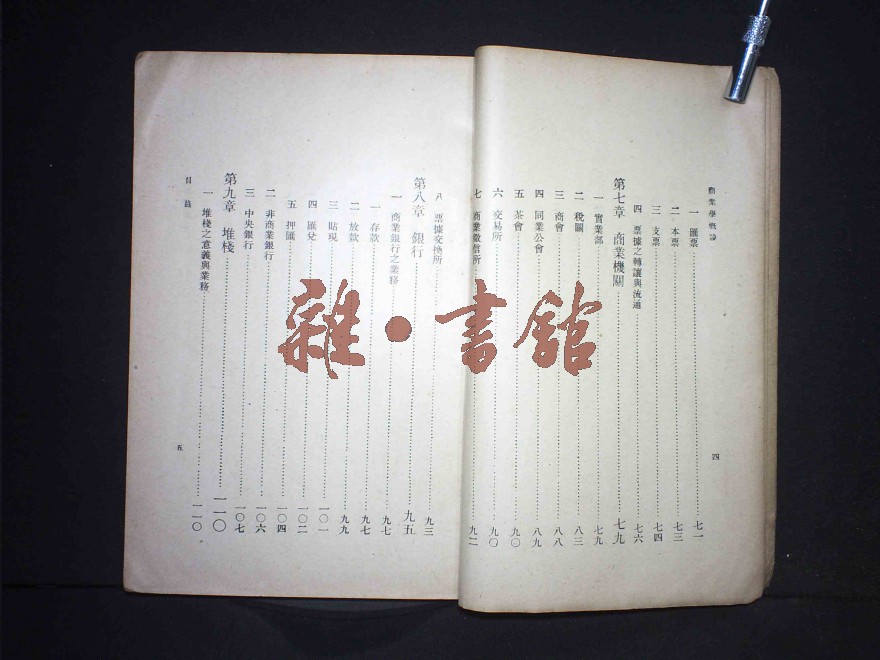 商業學概論
一 匯票 七一
二 本票 七三
三 支票 七四
四 票據之轉讓與流通 七六
第七章 商業機關 七九
一 實業部 七九
二 稅關 八三
三 商會 八八
四 同業公會 八九
五 茶會 九〇
六 交易所 九〇
七 商業徵信所 九二
四
八 票據交換所 九三
第八章 銀行 九五
一 商業銀行之業務 九七
一 存款 九七
二 放款 九九
三 貼現 一〇一
四 匯兌 一〇二
五 押匯 一〇四
二 非商業銀行 一〇六
三 中央銀行 一〇七
第九章 堆棧 一一〇
一 堆棧之意義與業務 一一〇
目錄
五
雜·書館